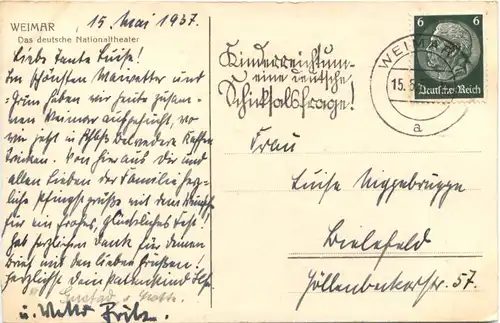 WEIMAR
Das deutsche Nationaltheater
15. Mai 1937.
Liebe Tante Luise!
Im schönsten Maiwetter und
Grün haben wir heute zusam-
men Weimar aufgesucht, wo
wir jetzt in Schloß Belvedere Kaffee
trinken. Von hier aus Dir und
allen Lieben der Familie herz-
liche Pfingstgrüße mit dem Wunsche
für ein frohes, glückliches Fest!
Hab herzlichen Dank für Deinen
Brief mit den lieben Grüßen!
Herzlichst Dein Patenkind Ilse
u. Vetter Fritz.
Kinderreichtum-
eine deutsche
Schicksalsfrage!
WEIMAR
15.5.
a
6 6
Deutsches Reich
Frau
Luise Niggebrügge
Bielefeld
Göllenbeckerstr. 57.